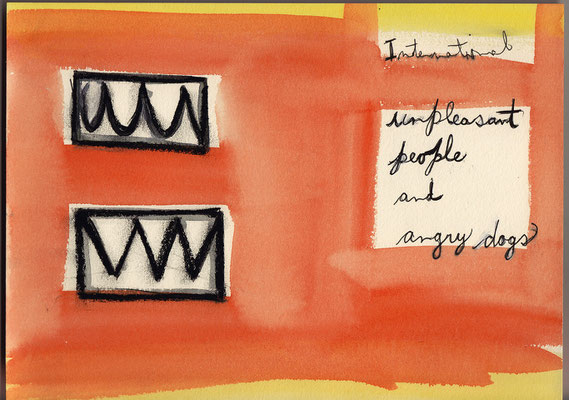 International
unpleasant
people
and
angry dogs